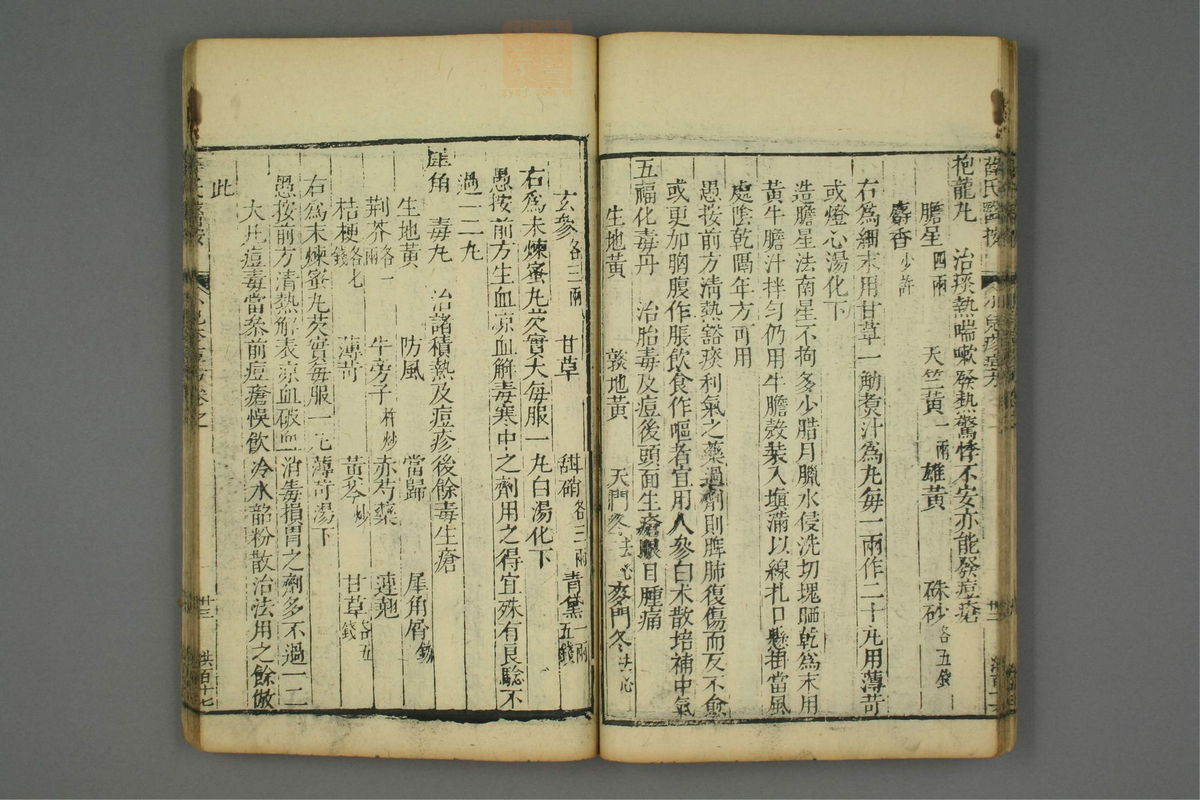 薛氏醫按
抱龍丸　治痰熱喘嗽發熱驚悸不安亦能發痘疹
膽星四兩　天竺黃一兩　雄黃　硃砂各五錢
麝香少許
右爲細末用甘草一觔煑汁爲丸每一兩作二十丸用薄苛
或燈心湯化下
造膽星法南星不拘多少腊月臘水侵洗切塊晒乾爲末用
黃牛膽汁拌勻仍用牛膽殼裝入塡滿以線扎口懸掛當風
處陰乾隔年方可用
愚按前方清熱豁痰利氣之藥過劑則脾肺復傷而反不愈
或更加胸腹作脹飲食作嘔者宜用人參白朮散培補中氣
五福化毒丹　治胎毒及痘後頭面生瘡眼目腫痛
生地黃　熟地黃　天門冬去心　麥門冬去心
玄參各三兩　甘草　甜硝各三兩　青黛一兩五錢
右爲末煉蜜丸芡實大每服一丸白湯化下
愚按前方生血凉血解毒寒中之劑用之得宜殊有良驗不
過一二丸
犀角　毒丸　治諸積熱及痘疹後餘毒生瘡
生地黃　防風　當歸　犀角屑鎊
荆芥各一兩　牛旁子杵炒　赤芍藥　連翹
桔梗各七錢　薄苛　黃芩炒　甘草各五錢
右爲末煉蜜丸芡實每服一丸薄苛湯下
愚按前方清熱解表凉血破血消毒損胃之劑多不過一二
大凡痘毒當叅前痘瘡悞飲冷水韶粉散治法用之餘倣
此
卄三
共百十七